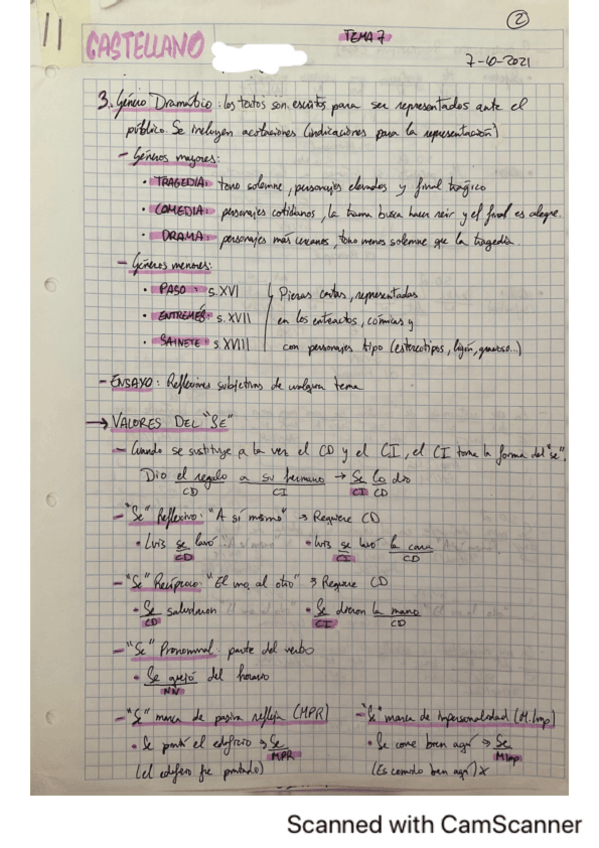 11
2
CASTELLANO
TEMA 7
7-10-2021
3. Género Dramático: los textos son escritos para ser representados ante el
público. Se incluyen acotaciones (indicaciones para la representación)
- Géneros mayores:
· TRAGEDIA: tono solemne, personajes elevados y final trágico
· COMEDIA: personajes cotidianos, la trama busca hacer reír y el final es alegre.
· DRAMA: personajes más cercanos, tono menos solemne que la tragedia.
- Géneros menores:
· PASO: s.XVI Piezas cortas, representadas
· ENTREMÉS: s.XVII en los entreactos, cómicas y
· SAINETE: s.XVIII con personajes tipo (estereotipos, gracioso...)
- ENSAYO: Reflexiones subjetivas de cualquier tema
→ VALORES DEL "SE"
- Cuando se sustituye a la vez el CD y el CI, el CI toma la forma del "se".
Dio el regalo a su hermano → Se lo dio
CD CI CI CD
- "Se" Reflexivo: "A sí mismo" → Requiere CD
· Luis se lavó · Luis se lavó la cara
CD CI CD
- "Se" Recíproco: "El uno al otro" → Requiere CD
· Se saludaron · Se dieron la mano
CD CI CD
- "Se" Pronominal: parte del verbo
· Se quejó del horario
NN
- "Se" marca de pasiva refleja (MPR) - "Se" marca de Impersonalidad (M.Imp)
· Se pintó el edificio → Se · Se come bien aquí → Se
MPR MImp
(el edificio fue pintado) (Es comido bien aquí) X
Scanned with CamScanner